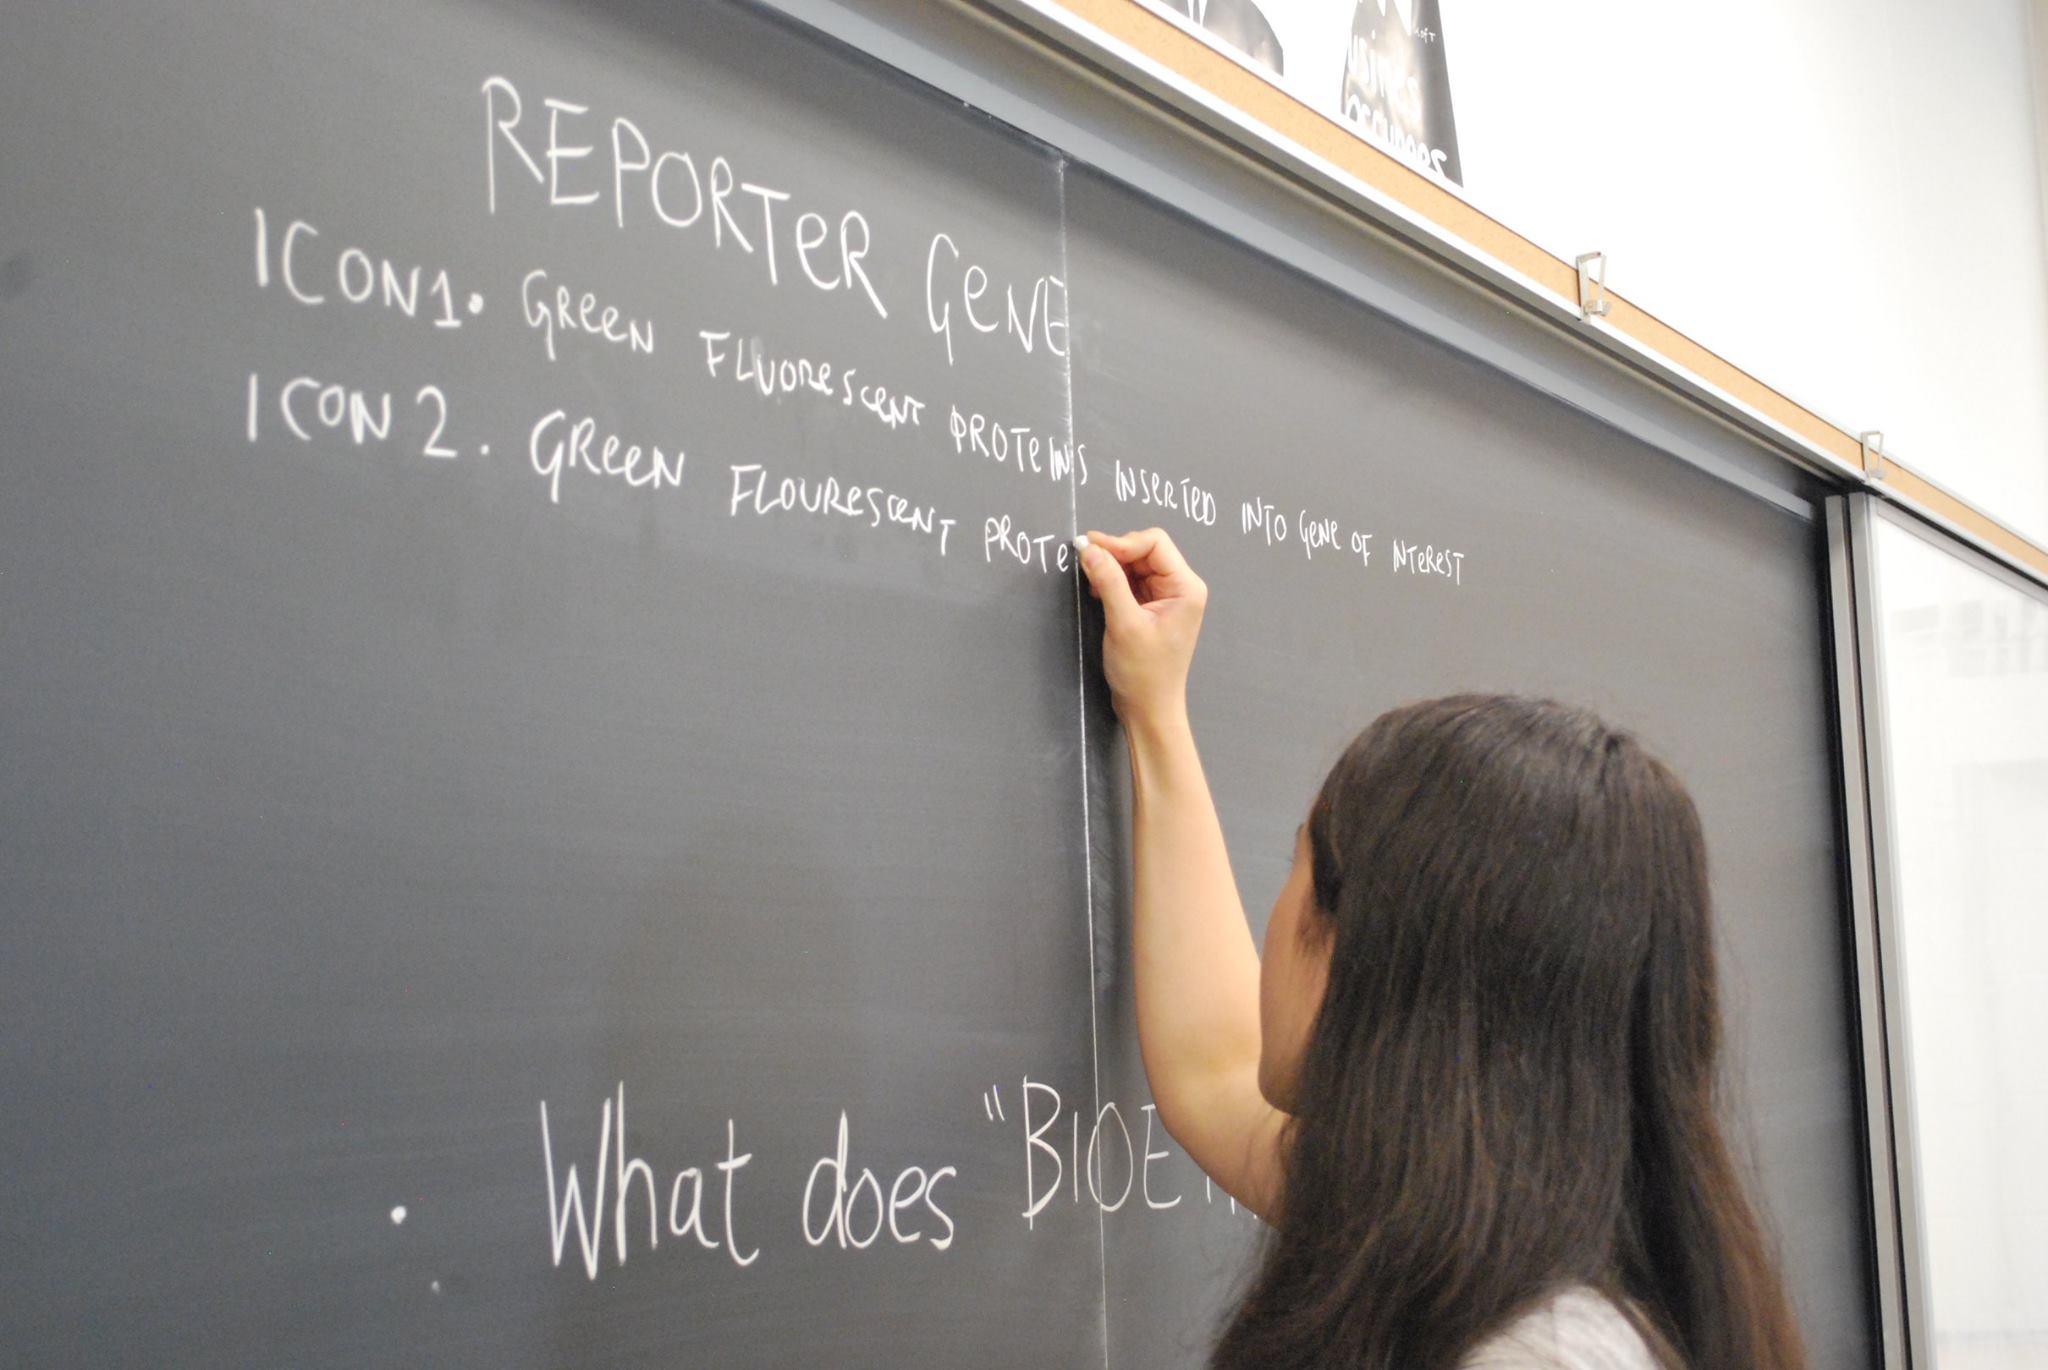 REPORTER GENE
ICON1. GREEN FLUORESCENT PROTEINS INSERTED INTO GENE OF INTEREST
ICON 2. GREEN FLOURESCENT PROTE
What does "BIOE